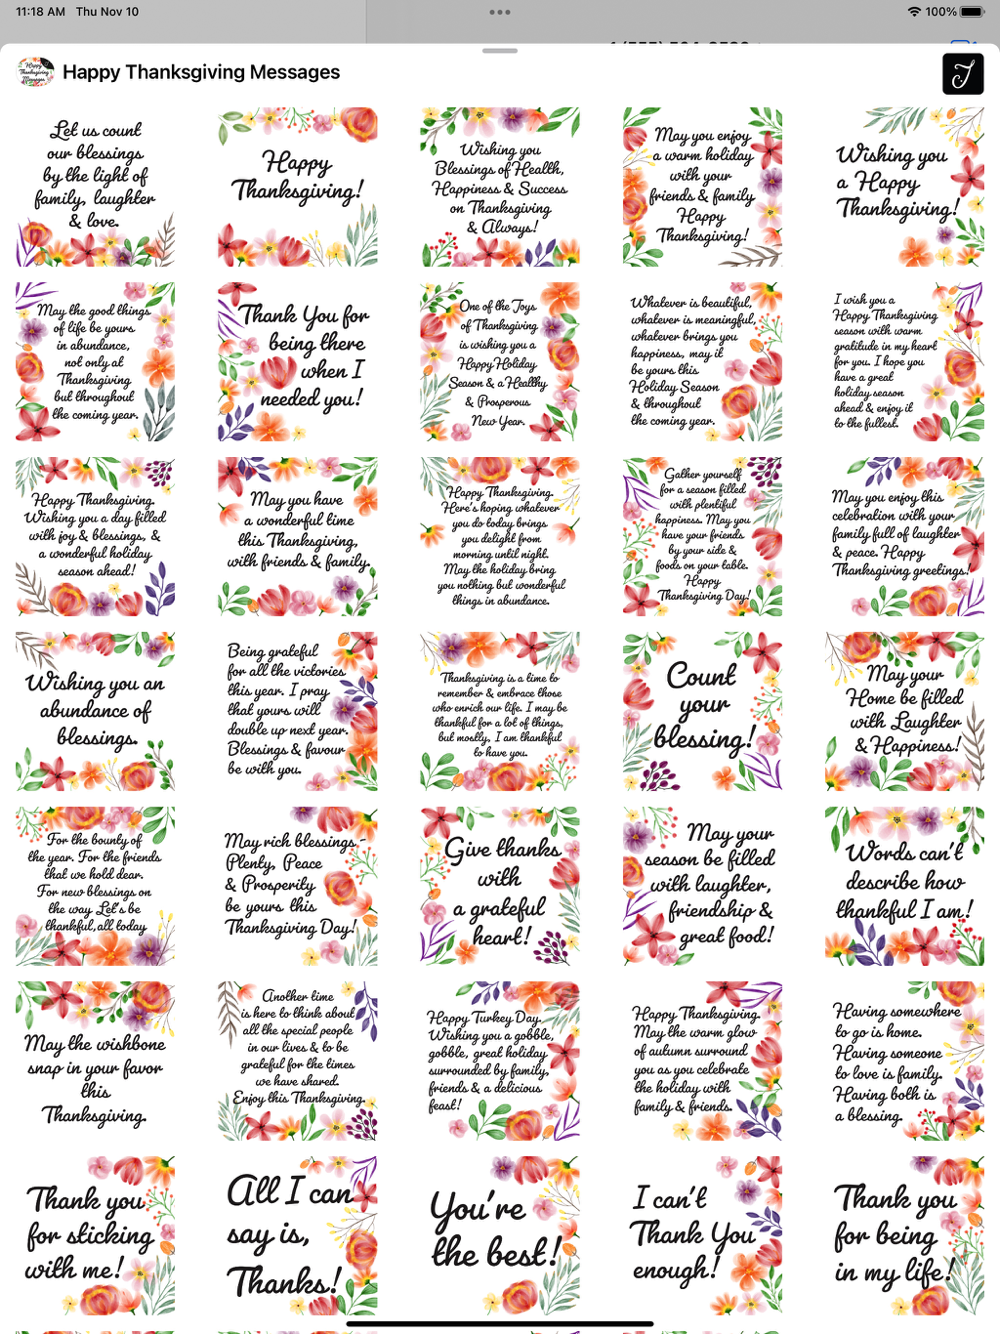 11:18 AM Thu Nov 10
100%
Happy Thanksgiving Messages
Let us count
our blessings
by the light of
family, laughter
& love.
Happy
Thanksgiving!
Wishing you
Blessings of Health,
Happiness & Success
on Thanksgiving
& Always!
May you enjoy
a warm holiday
with your
friends & family
Happy
Thanksgiving!
Wishing you
a Happy
Thanksgiving!
May the good things
of life be yours
in abundance,
not only at
Thanksgiving
but throughout
the coming year.
Thank You for
being there
when I
needed you!
One of the Joys
of Thanksgiving
is wishing you a
Happy Holiday
Season & a Healthy
& Prosperous
New Year.
Whatever is beautiful,
whatever is meaningful,
whatever brings you
happiness, may it
be yours this
Holiday Season
& throughout
the coming year.
I wish you a
Happy Thanksgiving
season with warm
gratitude in my heart
for you. I hope you
have a great
holiday season
ahead & enjoy it
to the fullest.
Happy Thanksgiving.
Wishing you a day filled
with joy & blessings, &
a wonderful holiday
season ahead!
May you have
a wonderful time
this Thanksgiving,
with friends & family.
Happy Thanksgiving.
Here's hoping whatever
you do today brings
you delight from
morning until night.
May the holiday bring
you nothing but wonderful
things in abundance.
Gather yourself
for a season filled
with plentiful
happiness. May you
have your friends
by your side &
foods on your table.
Happy
Thanksgiving Day!
May you enjoy this
celebration with your
family full of laughter
& peace. Happy
Thanksgiving greetings!
Wishing you an
abundance of
blessings.
Being grateful
for all the victories
this year. I pray
that yours will
double up next year.
Blessings & favour
be with you.
Thanksgiving is a time to
remember & embrace those
who enrich our life. I may be
thankful for a lot of things,
but mostly, I am thankful
to have you.
Count
your
blessing!
May your
Home be filled
with Laughter
& Happiness!
For the bounty of
the year. For the friends
that we hold dear.
For new blessings on
the way Let's be
thankful, all today
May rich blessings-
Plenty, Peace
& Prosperity
be yours this
Thanksgiving Day!
Give thanks
with
a grateful
heart!
May your
season be filled
with laughter,
friendship &
great food!
Words can't
describe how
thankful I am!
May the wishbone
snap in your favor
this
Thanksgiving.
Another time
is here to think about
all the special people
in our lives & to be
grateful for the times
we have shared.
Enjoy this Thanksgiving.
Happy Turkey Day.
Wishing you a gobble,
gobble, great holiday
surrounded by family,
friends & a delicious
feast!
Happy Thanksgiving.
May the warm glow
of autumn surround
you as you celebrate
the holiday with
family & friends.
Having somewhere
to go is home.
Having someone
to love is family.
Having both is
a blessing.
Thank you
for sticking
with me!
All I can
say is,
Thanks!
You're
the best!
I can't
Thank You
enough!
Thank you
for being
in my life!